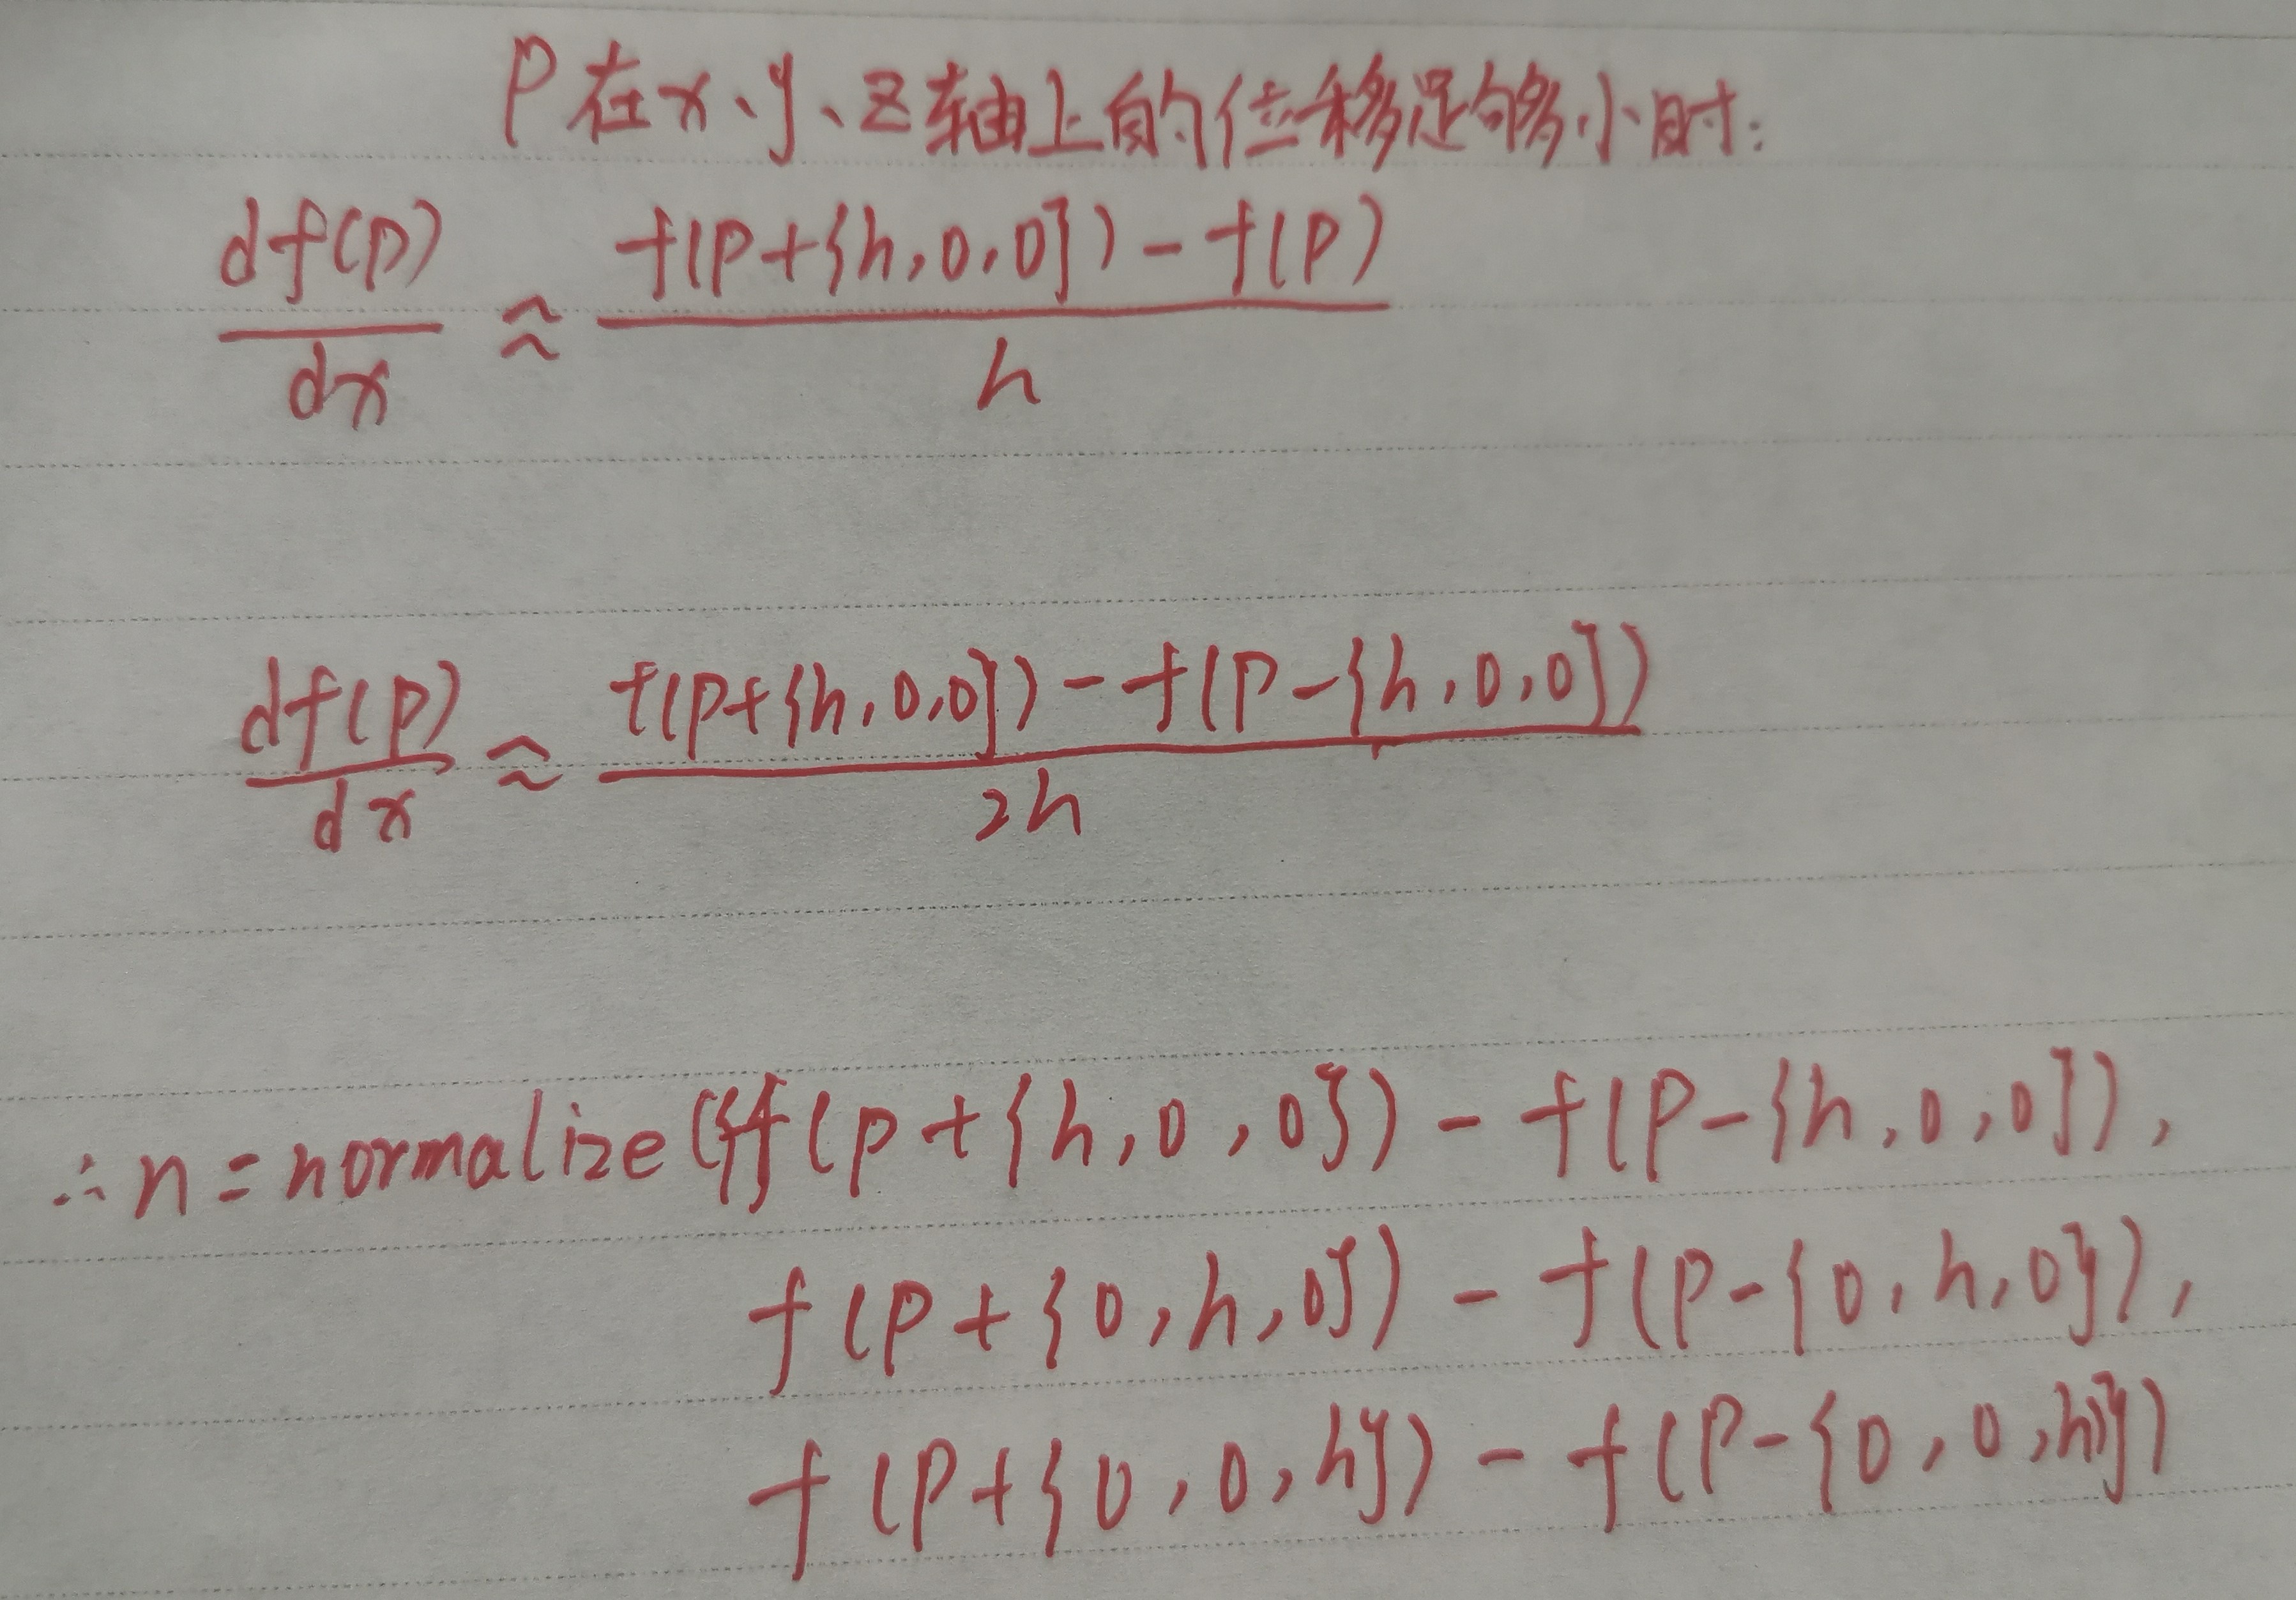 P在x、y、z轴上的位移足够小时:
df(p)/dx ≈ f(p+{h,0,0})-f(p)/h
df(p)/dx ≈ f(p+{h,0,0})-f(p-{h,0,0})/2h
∴n=normalize({f(p+{h,0,0})-f(p-{h,0,0}),
f(p+{0,h,0})-f(p-{0,h,0}),
f(p+{0,0,h})-f(p-{0,0,h})